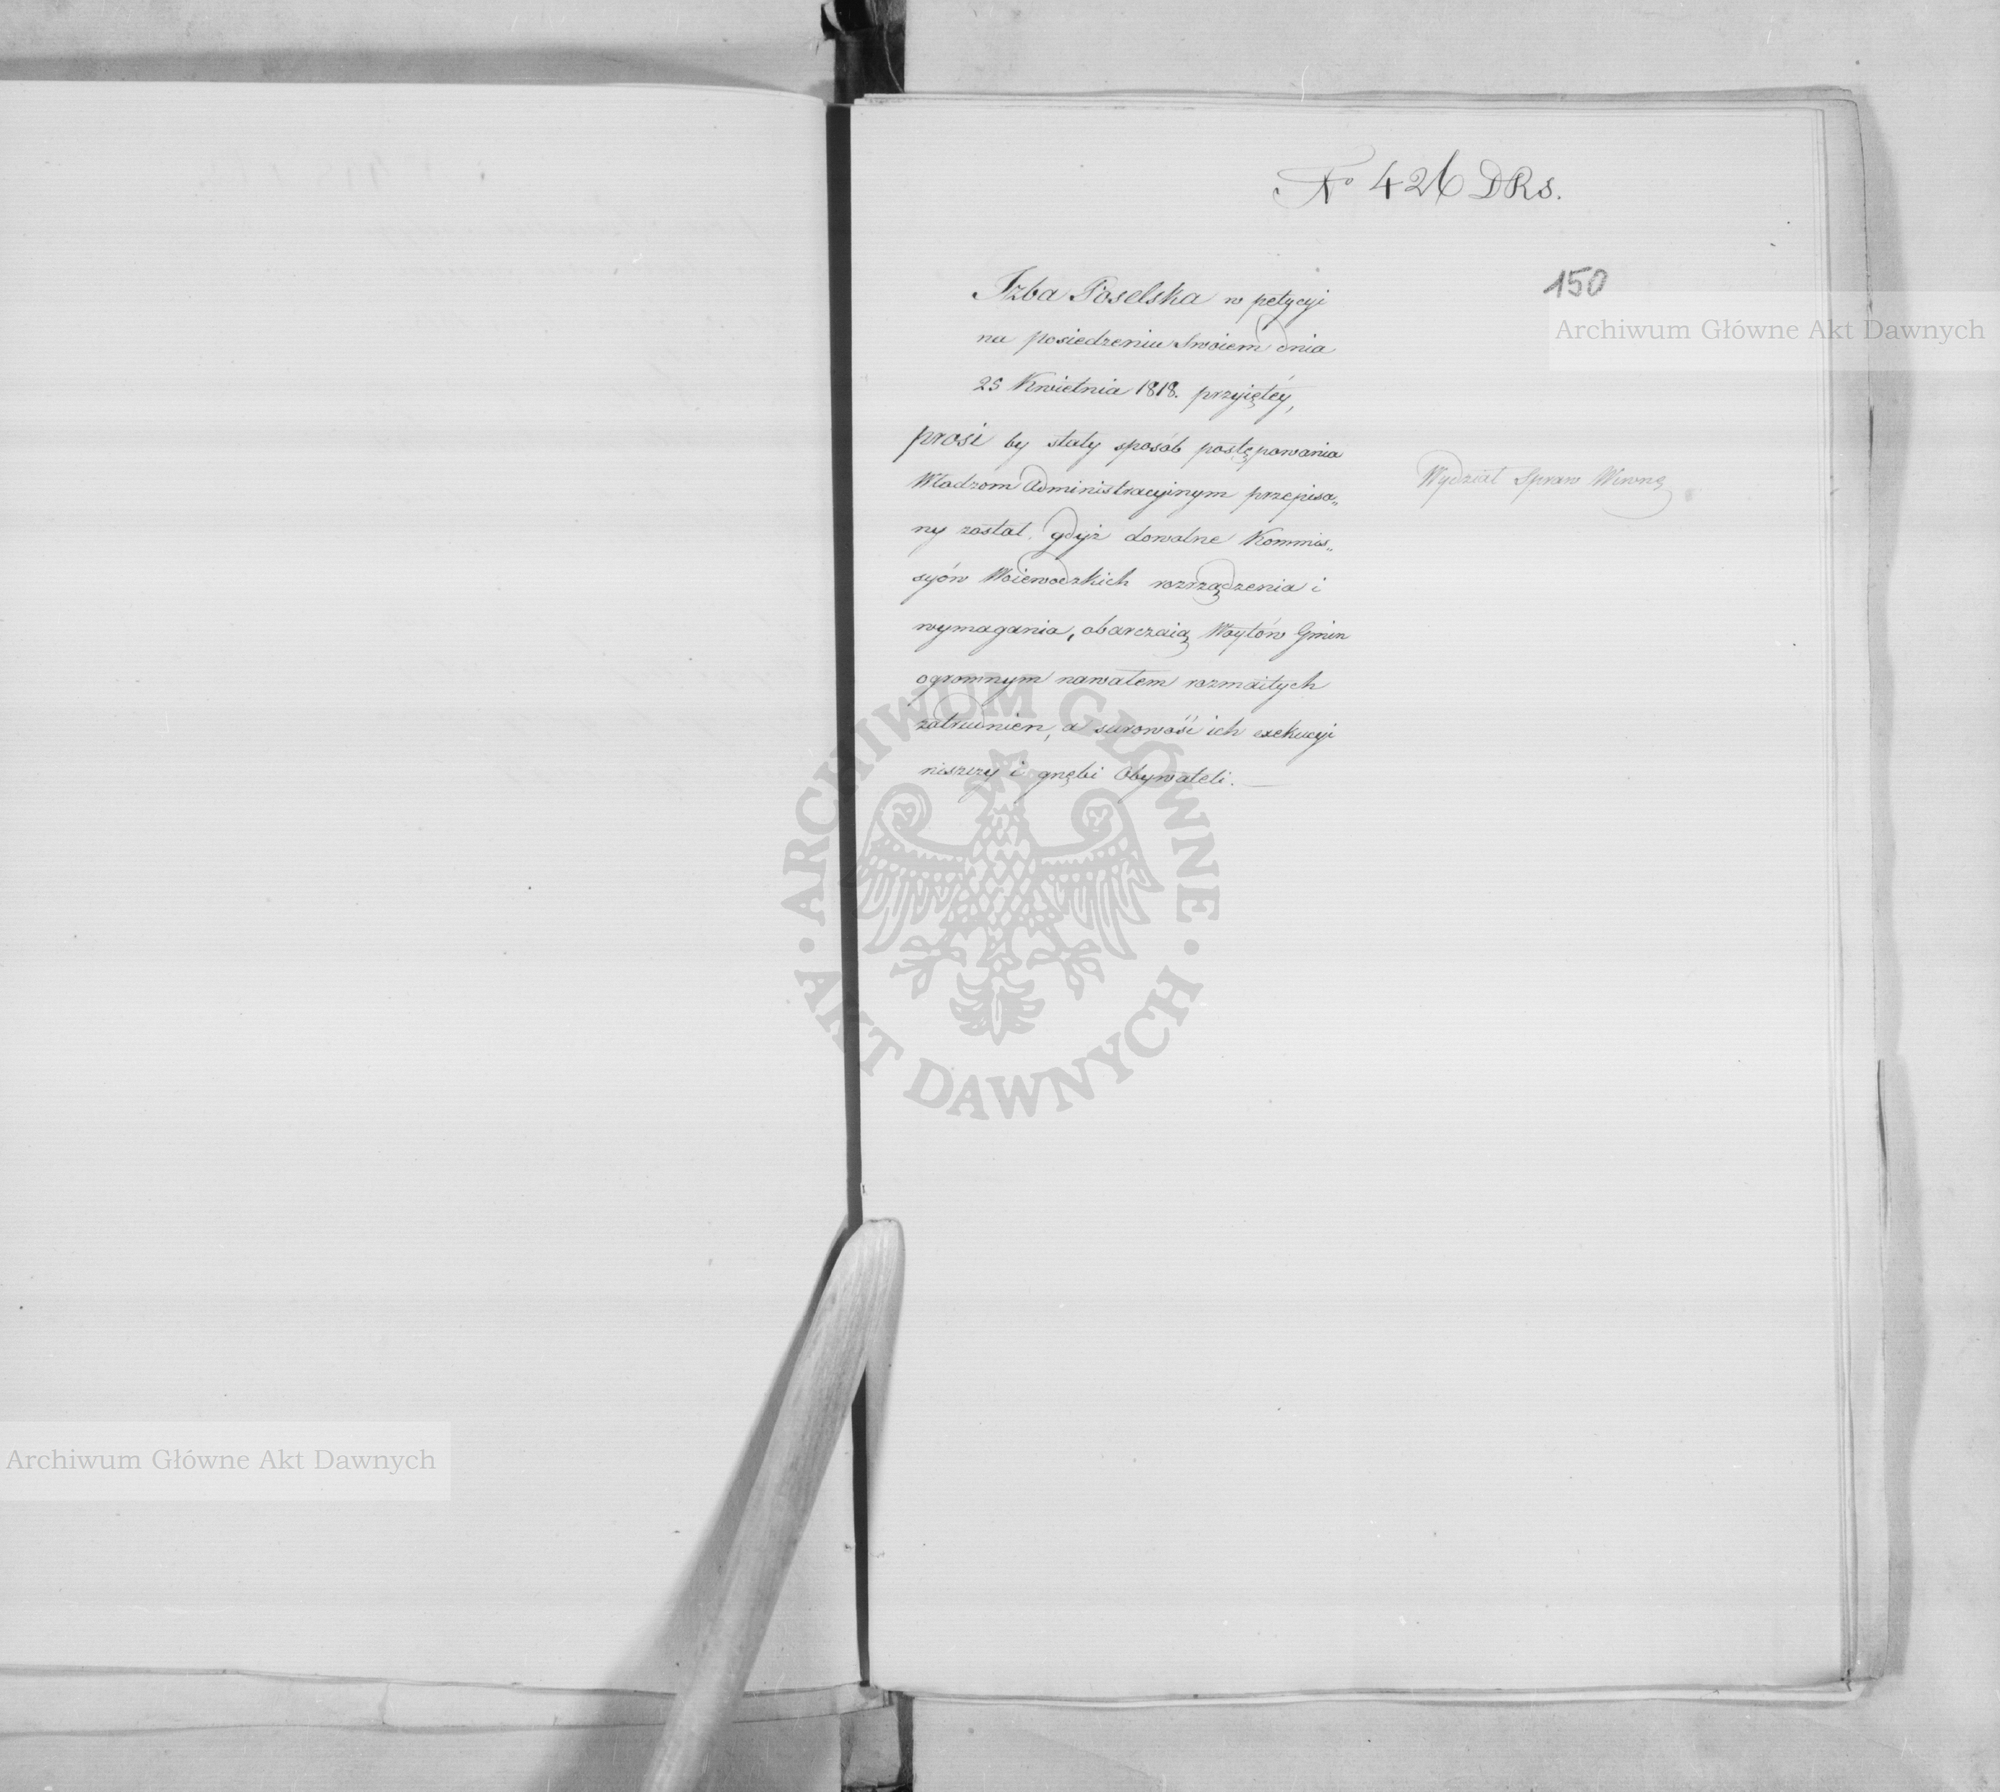 No 426 DRs.
150
Archiwum Główne Akt Dawnych
Izba Poselska w petycyi
na posiedzeniu Swoiem dnia
25 Kwietnia 1818. przyiętéy,
prosi by stały sposób postępowania
Władzom Administracyinym przepisa„
ny został, gdyż dowolne Kommis„
syów Woiewodzkich rozrządzenia i
wymagania, obarczaią Woytów Gmin
ogromnym nawałem rozmaitych
zatrudnien, a surowość ich exekucyi
niszczy i gnębi Obywateli. —
Wydział Spraw Wewnę
ARCHIWUM GŁÓWNE
AKT DAWNYCH
Archiwum Główne Akt Dawnych